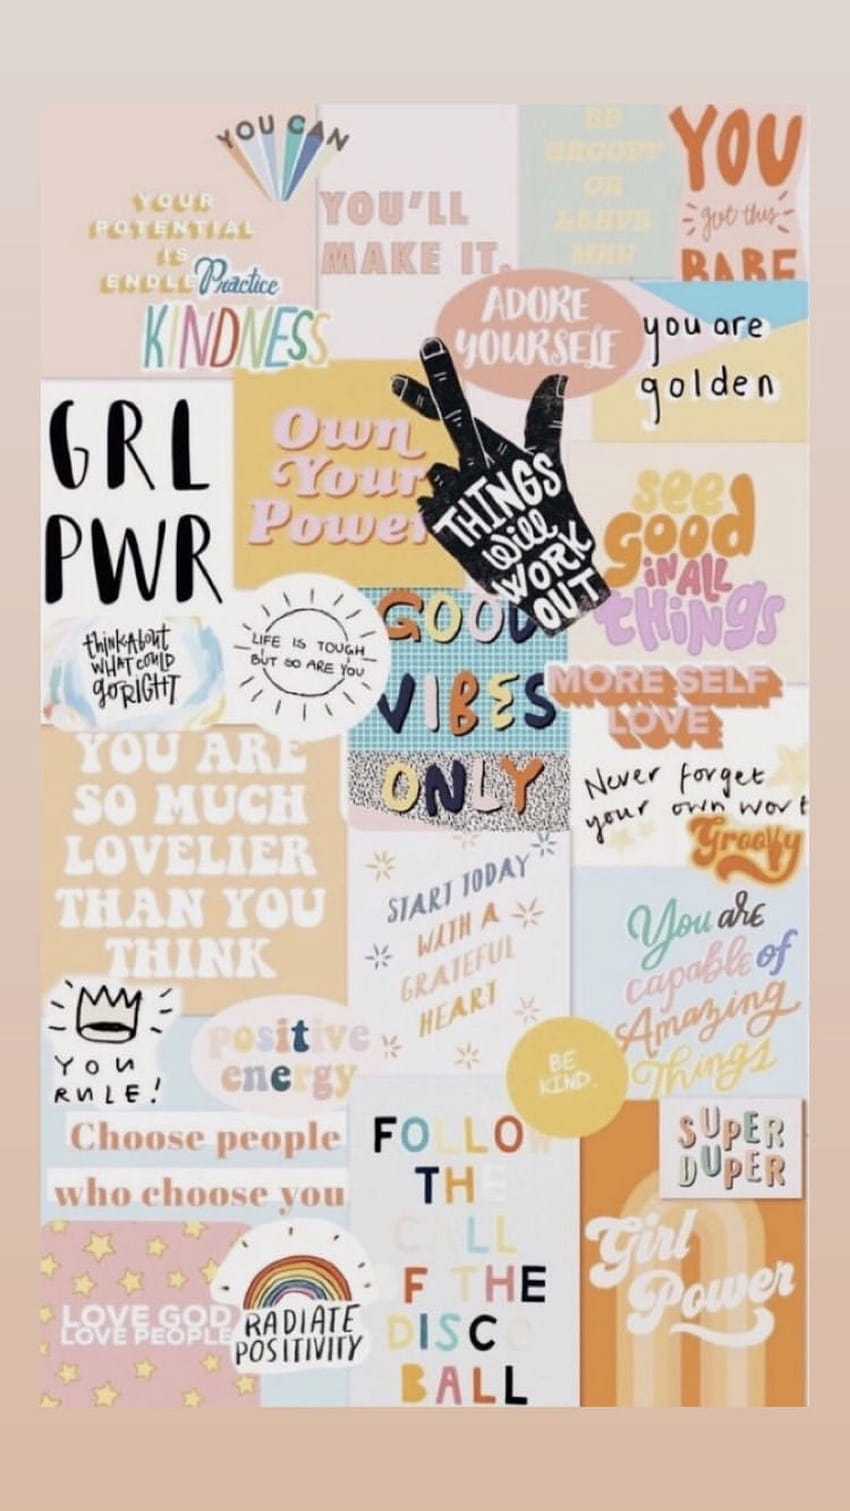 YOU CAN
YOUR
POTENTIAL
IS
ENDLE
Practice
KINDNESS
YOU'LL
MAKE IT.
BE
GROOVY
OR
LEAVE
MAN
YOU
got this
BABE
ADORE
YOURSELF
you are
golden
GRL
PWR
Own
Your
Power
THINGS
Will
WORK
OUT
see
good
iN ALL
tHiNgs
thiNk About
WHAT COULD
go RIGHT
LIFE IS TOUGH
BUT SO ARE YOU
GOOD
VIBES
ONLY
MORE SELF
LOVE
Never forget
your own wort
Groovy
YOU ARE
SO MUCH
LOVELIER
THAN YOU
THINK
START TODAY
WITH A
GRATEFUL
HEART
You are
capable of
Amazing
Things
YOU
RULE!
positive
energy
BE
KIND.
Choose people
who choose you
FOLLOW
THE
CALL
F THE
DISCO
BALL
SUPER
DUPER
Girl
Power
LOVE GOD
LOVE PEOPLE
RADIATE
POSITIVITY